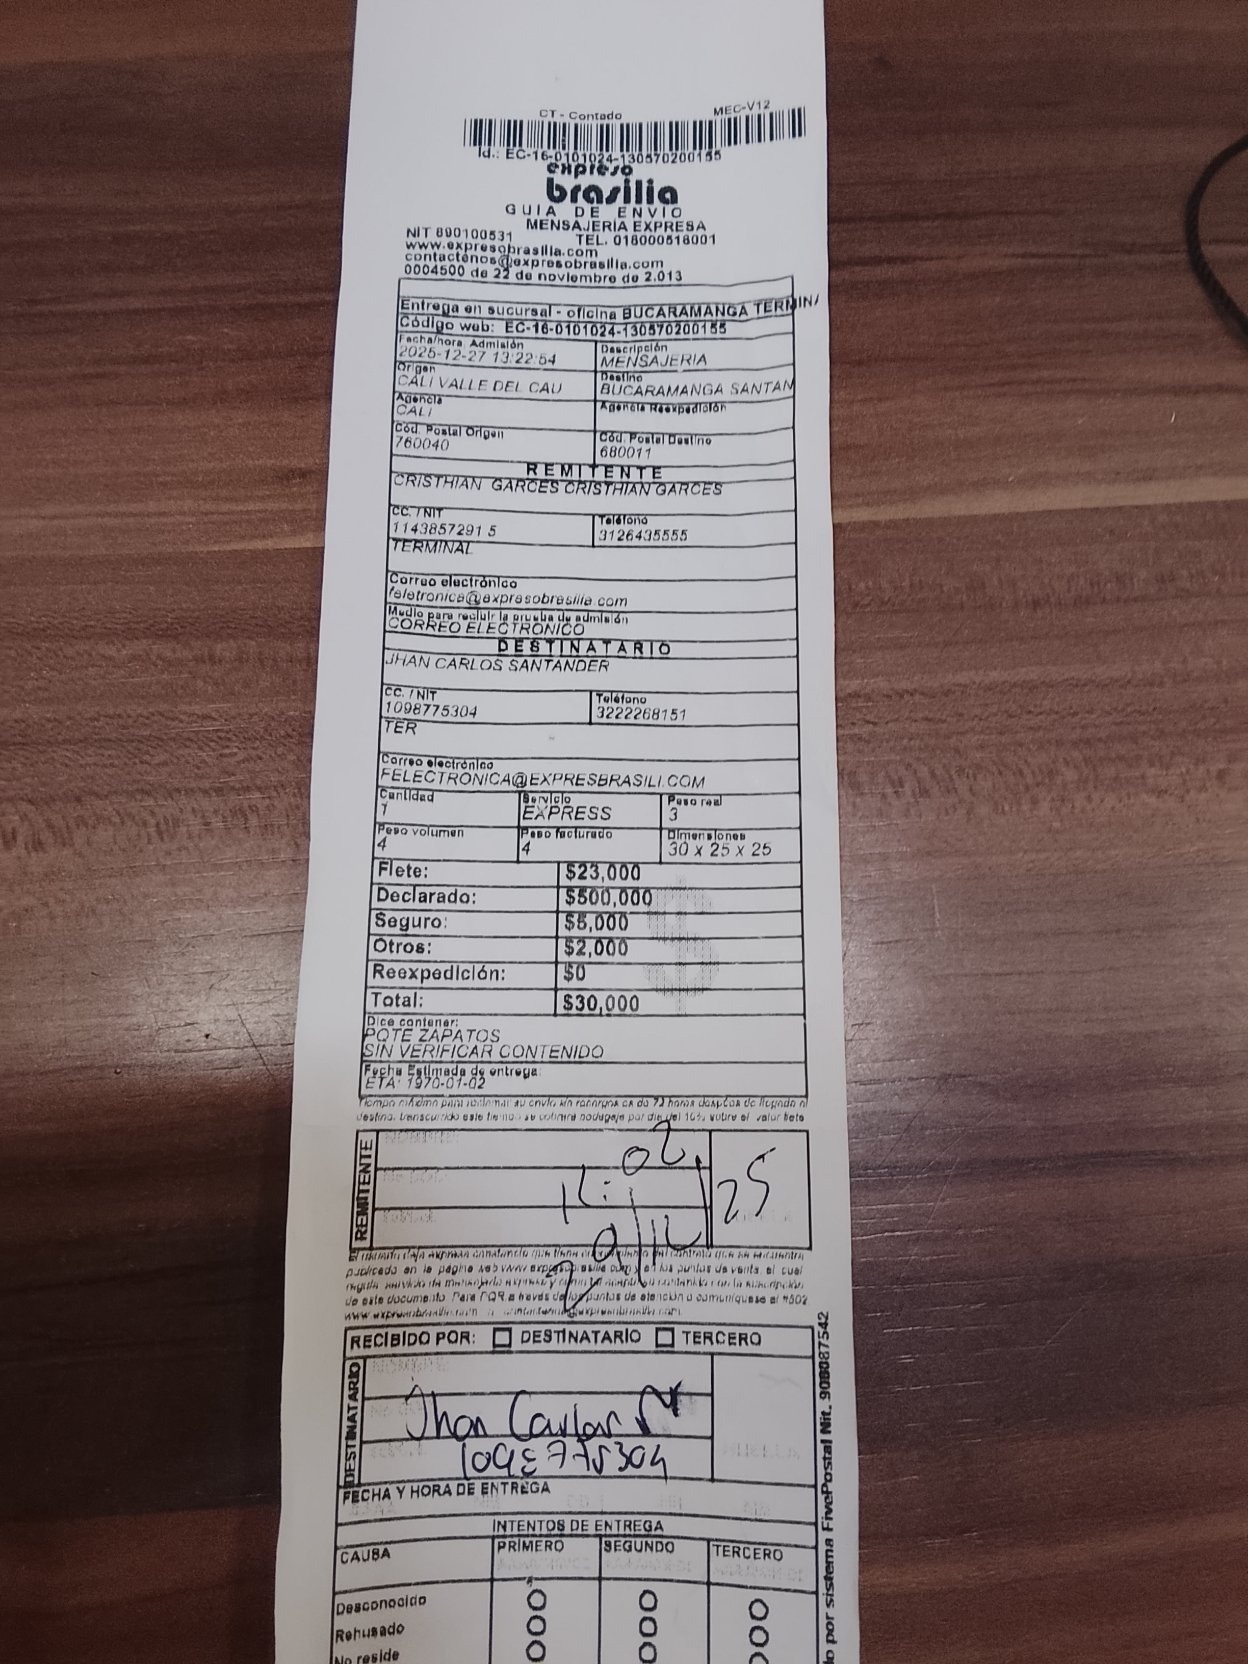 CT - Contado MEC-V12
Id.: EC-16-0101024-130570200155
expreso
brasilia
GUIA DE ENVIO
MENSAJERIA EXPRESA
NIT 890100531 TEL. 018000518001
www.expresobrasilia.com
contactenos@expresobrasilia.com
0004500 de 22 de noviembre de 2.013
Entrega en sucursal - oficina BUCARAMANGA TERMINA
Código web: EC-16-0101024-130570200155
Fecha/hora Admisión Descripción
2025-12-27 13:22:54 MENSAJERIA
Origen Destino
CALI VALLE DEL CAU BUCARAMANGA SANTAN
Agencia Agencia Reexpedición
CALI
Cód. Postal Origen Cód. Postal Destino
760040 680011
REMITENTE
CRISTHIAN GARCES CRISTHIAN GARCES
CC. / NIT Teléfono
1143857291 5 3126435555
TERMINAL
Correo electrónico
feletronica@expresobrasilia.com
Medio para recibir la prueba de admisión
CORREO ELECTRONICO
DESTINATARIO
JHAN CARLOS SANTANDER
CC. / NIT Teléfono
1098775304 3222268151
TER
Correo electrónico
FELECTRONICA@EXPRESBRASILI.COM
Cantidad Servicio Peso real
1 EXPRESS 3
Peso volumen Peso facturado Dimensiones
4 4 30 x 25 x 25
Flete: $23,000
Declarado: $500,000
Seguro: $5,000
Otros: $2,000
Reexpedición: $0
Total: $30,000
Dice contener:
PQTE ZAPATOS
SIN VERIFICAR CONTENIDO
Fecha Estimada de entrega:
ETA: 1970-01-02
Tiempo máximo para reclamar su envío sin recargos es de 72 horas después de llegado al
destino, transcurrido este tiempo se cobrará bodegaje por día del 10% sobre el valor flete
REMITENTE
29/12/25
publicado en la página web www.expresobrasilia.com y en los puntos de venta, el cual
de este documento. Para PQR a través de los puntos de atención o comuníquese al #502
RECIBIDO POR: DESTINATARIO TERCERO
DESTINATARIO
Jhan Carlos
1098775304
FECHA Y HORA DE ENTREGA
INTENTOS DE ENTREGA
CAUSA PRIMERO SEGUNDO TERCERO
Desconocido
Rehusado
No reside
do por sistema FivePostal Nit. 908087542